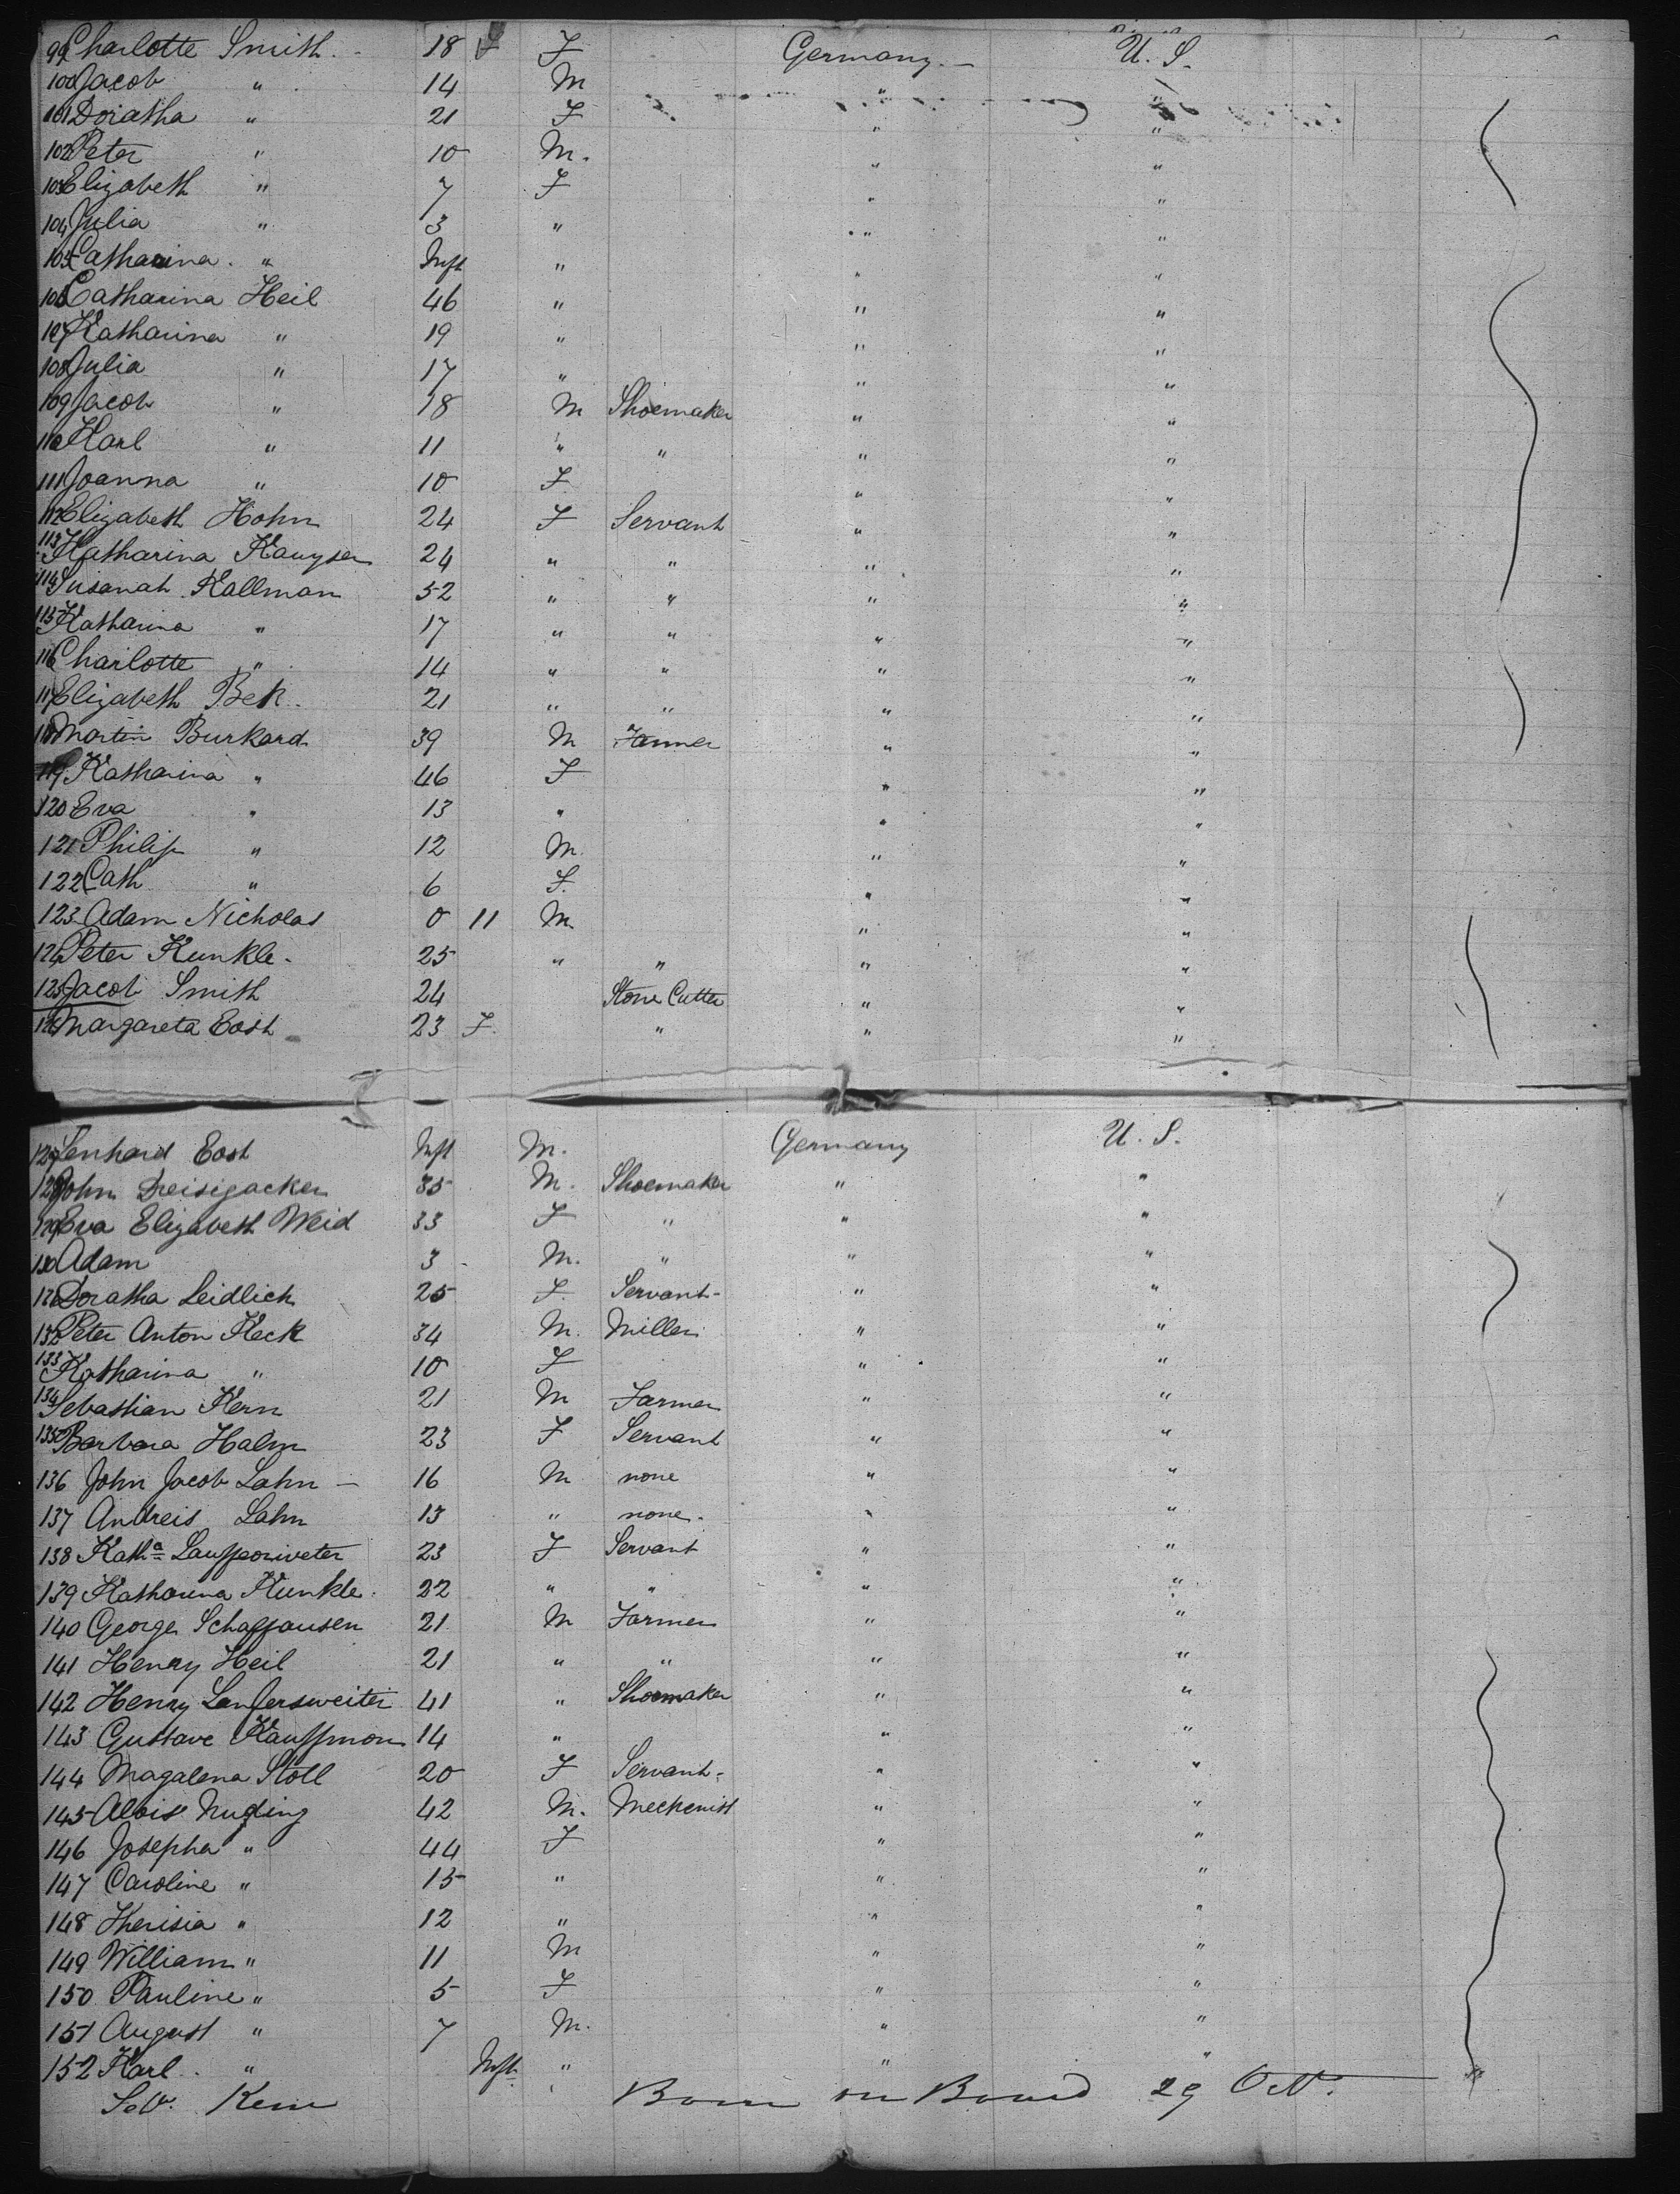 99 Charlotte Smith. 18 F Germany. U. S.
100 Jacob " 14 M " "
101 Doratha " 21 F " "
102 Peter " 10 M. " "
103 Elizabeth " 7 F " "
104 Julia " 3 " " "
105 Catharina. " Inft " " "
106 Catharina Heil 46 " " "
107 Katharina " 19 " " "
108 Julia " 17 " " "
109 Jacob " 18 M Shoemaker " "
110 Karl " 11 " " " "
111 Joanna " 10 F " "
112 Elizabeth Hohn 24 F Servant " "
113 Katharina Kauyser 24 " " " "
114 Susanah Kallman 52 " " " "
115 Katharina " 17 " " " "
116 Charlotte " 14 " " " "
117 Elizabeth Bek. 21 " " " "
118 Martin Burkard 39 M Farmer " "
119 Katharina " 46 F " "
120 Eva " 13 " " "
121 Philip " 12 M. " "
122 Cath " 6 F. " "
123 Adam Nicholas 0 11 M. " "
124 Peter Kunkle. 25 " " " "
125 Jacob Smith 24 Stone Cutter " "
126 Margareta East 23 F. " " "
127 Lenhard East Inft M. Germany U. S.
128 John Dreisigacker 35 M. Shoemaker " "
129 Eva Elizabeth Weid 33 F " " "
130 Adam 3 M. " " "
Doratha Leidlich 25 F. Servant " "
132 Peter Anton Heck 34 M. Miller " "
133 Katharina " 10 F " "
134 Sebastian Kern 21 M Farmer " "
135 Barbara Halm 23 F Servant " "
136 John Jacob Lahn 16 M none " "
137 Andreis Lahn 13 " none. " "
138 Katha 23 F Servant " "
139 Katharina Kunkle. 22 " " " "
140 George Schaffausen 21 M Farmer " "
141 Henry Heil 21 " " " "
142 Henry Laufersweiter 41 " Shoemaker " "
143 Gustave Kauffmon 14 " " "
144 Magalena Stoll 20 F Servant " "
145 Alois Nuding 42 M. Meckenist " "
146 Josepha " 44 F " "
147 Caroline " 15 " " "
148 Therisia " 12 " " "
149 William " 11 M " "
150 Pauline " 5 F " "
151 August " 7 M. " "
152 Karl. " Inft. " " "
Seb. Kern Born on Board 29 Oct.